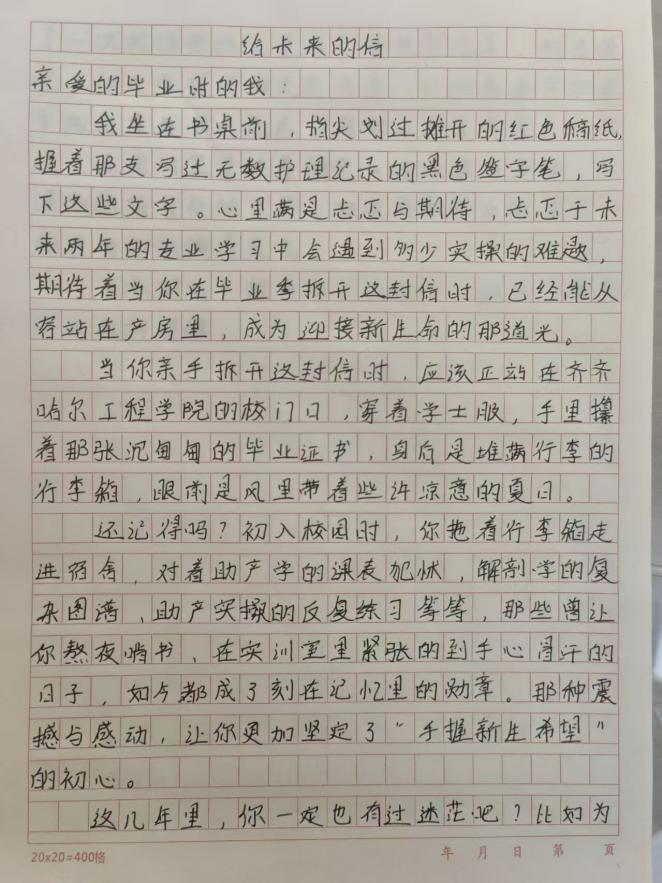 给未来的信
亲爱的毕业时的我：
我坐在书桌前，指尖划过摊开的红色稿纸，
握着那支写过无数护理记录的黑色签字笔，写
下这些文字。心里满是忐忑与期待，忐忑于未
来两年的专业学习中会遇到多少实操的难题，
期待着当你在毕业季拆开这封信时，已经能从
容站在产房里，成为迎接新生命的那道光。
当你亲手拆开这封信时，应该正站在齐齐
哈尔工程学院的校门口，穿着学士服，手里攥
着那张沉甸甸的毕业证书，身后是堆满行李的
行李箱，眼前是风里带着些许凉意的夏日。
还记得吗？初入校园时，你拖着行李箱走
进宿舍，对着助产学的课表犯怵，解剖学的复
杂图谱、助产实操的反复练习等等，那些曾让
你熬夜啃书、在实训室里紧张的到手心冒汗的
日子，如今都成了刻在记忆里的勋章。那种震
撼与感动，让你更加坚定了“手握新生希望”
的初心。
这几年里，你一定也有过迷茫吧？比如为
20×20=400格
年 月 日 第 页